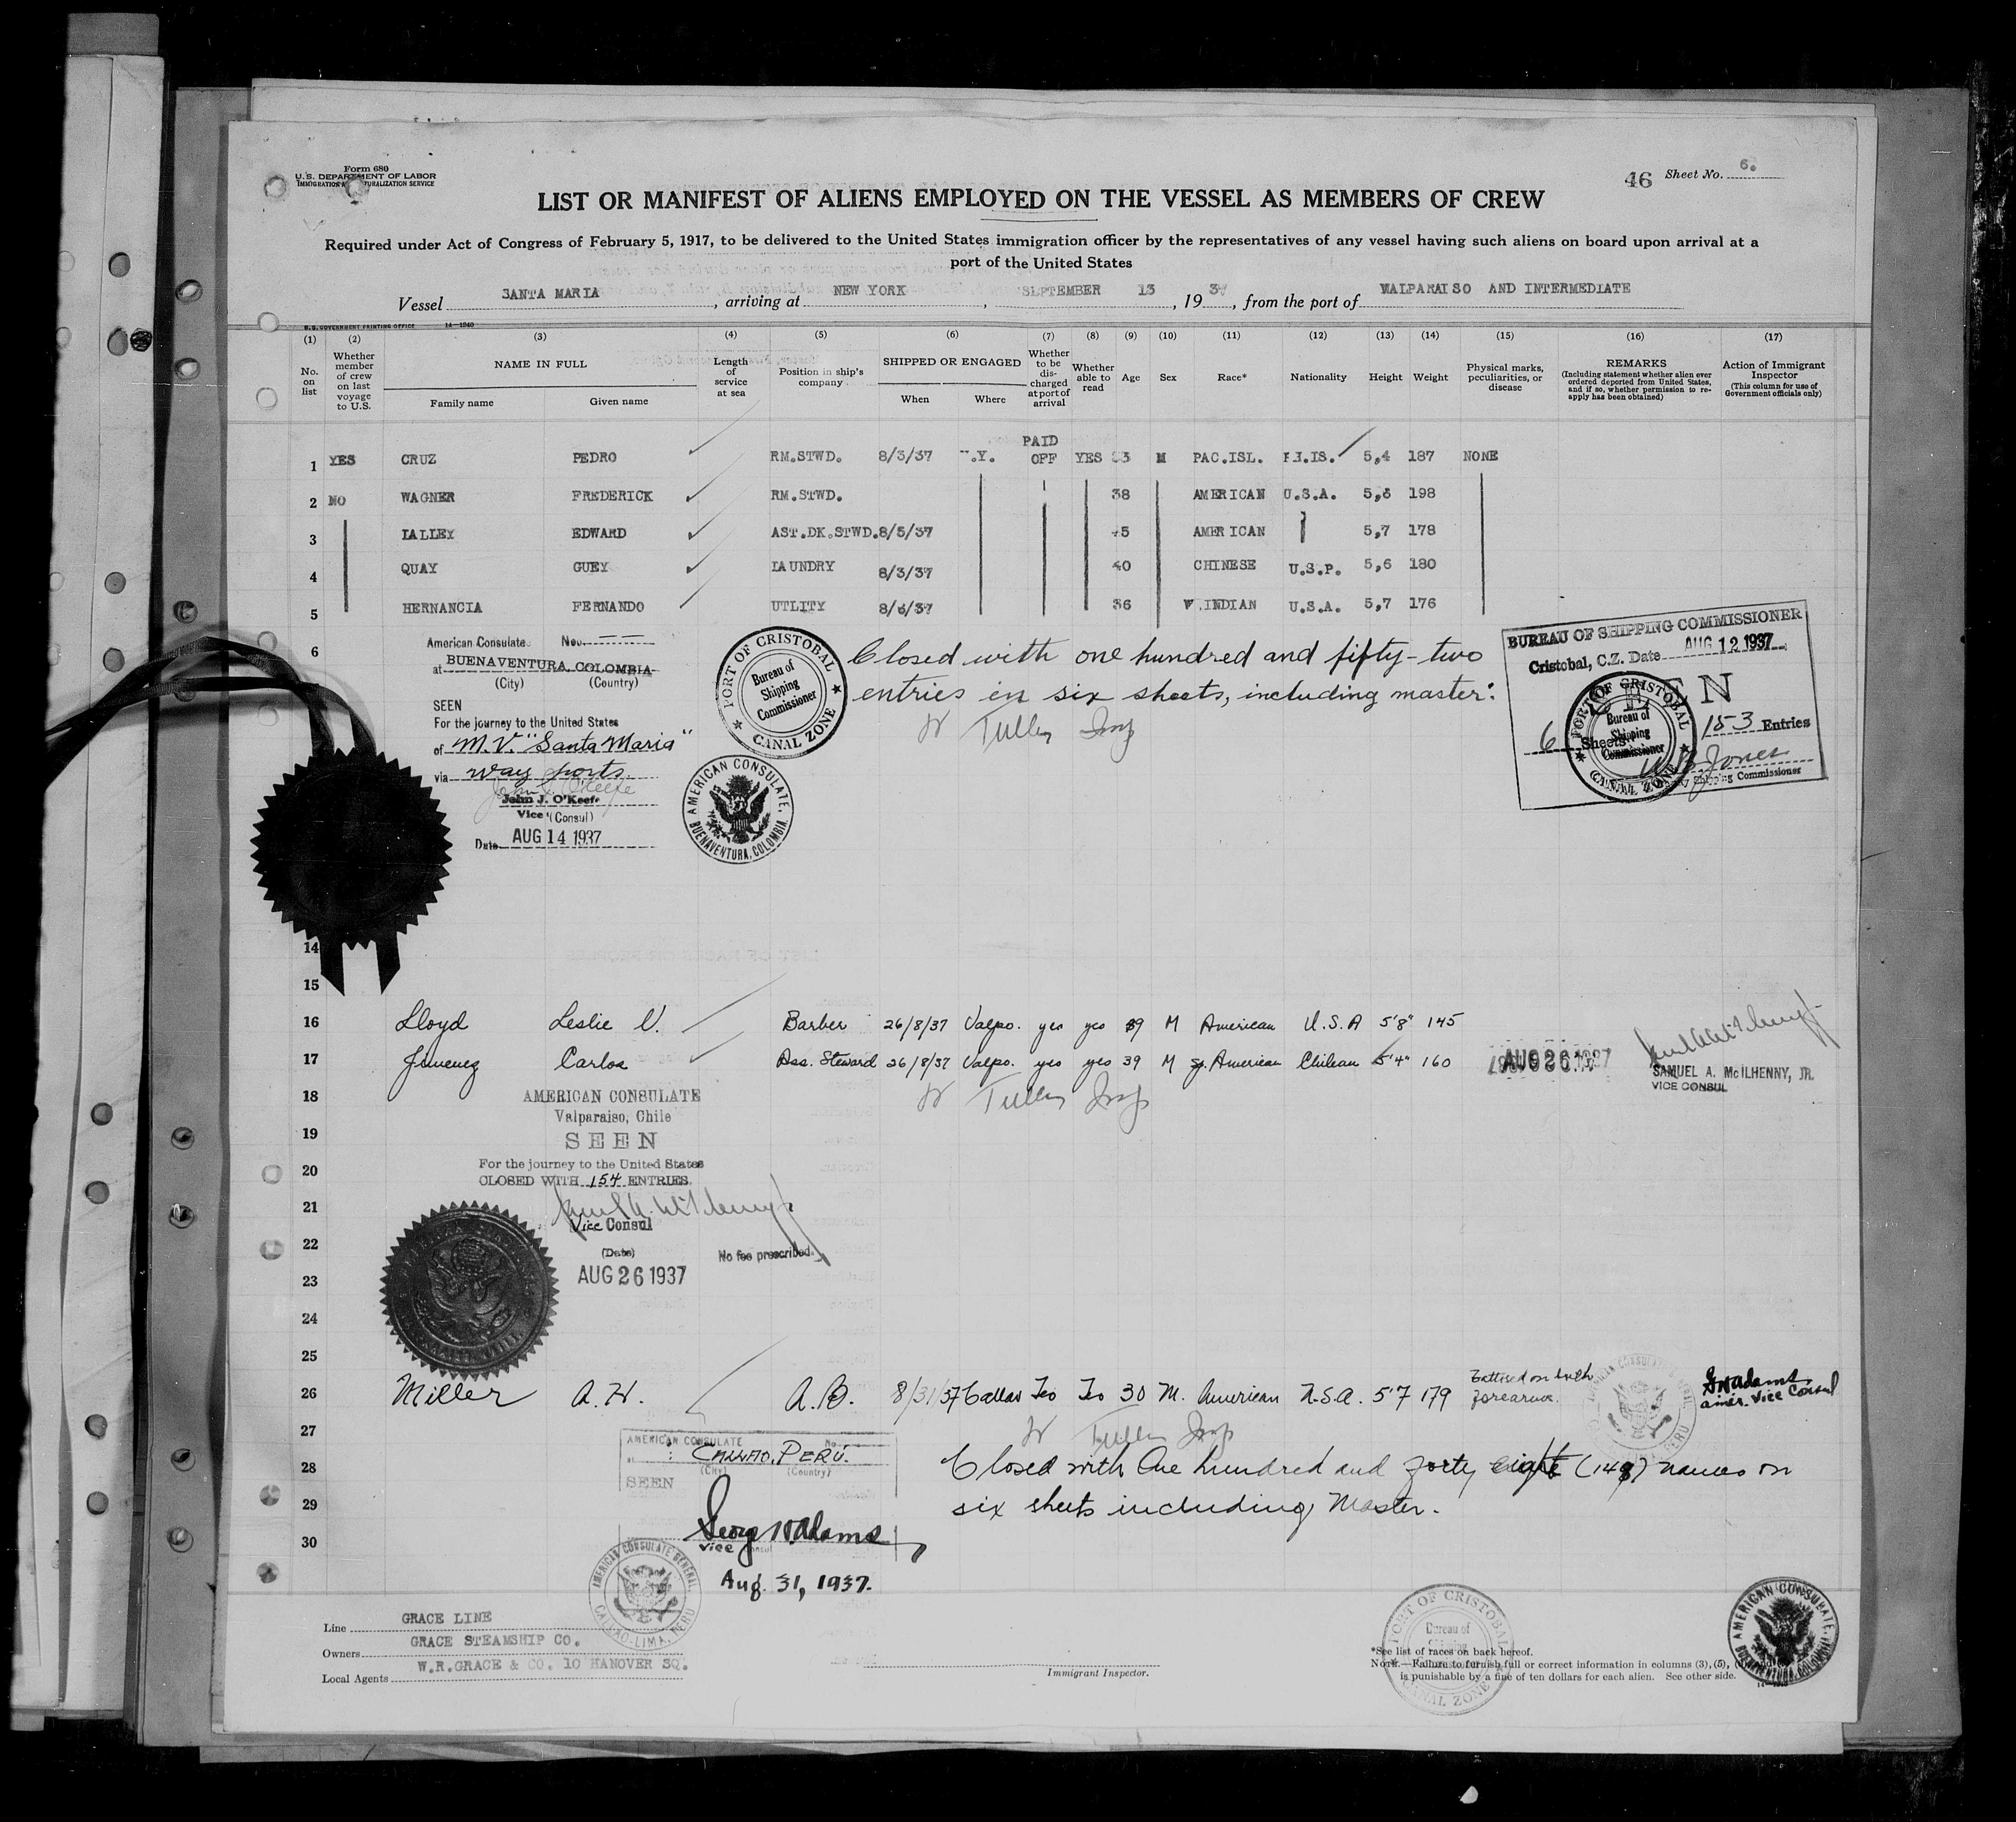 Form 680
U.S. DEPARTMENT OF LABOR
IMMIGRATION NATURALIZATION SERVICE
46 Sheet No. 6.
LIST OR MANIFEST OF ALIENS EMPLOYED ON THE VESSEL AS MEMBERS OF CREW
Required under Act of Congress of February 5, 1917, to be delivered to the United States immigration officer by the representatives of any vessel having such aliens on board upon arrival at a
port of the United States
Vessel SANTA MARIA, arriving at NEW YORK, SEPTEMBER 13, 1937, from the port of VALPARAISO AND INTERMEDIATE
U.S. GOVERNMENT PRINTING OFFICE 14—1240
(1) (2) (3) (4) (5) (6) (7) (8) (9) (10) (11) (12) (13) (14) (15) (16) (17)
No. on list
Whether member of crew on last voyage to U.S.
NAME IN FULL
Family name Given name
Length of service at sea
Position in ship's company
SHIPPED OR ENGAGED
When Where
Whether to be discharged at port of arrival
Whether able to read
Age
Sex
Race*
Nationality
Height
Weight
Physical marks, peculiarities, or disease
REMARKS
(Including statement whether alien ever ordered deported from United States, and if so, whether permission to reapply has been obtained)
Action of Immigrant Inspector
(This column for use of Government officials only)
PAID
1 YES CRUZ PEDRO RM.STWD. 8/3/37 .Y. OFF YES 3 M PAC.ISL. P.I.IS. 5,4 187 NONE
2 NO WAGNER FREDERICK RM.STWD. 38 AMERICAN U.S.A. 5,8 198
3 LALLEY EDWARD AST.DK.STWD. 8/5/37 45 AMERICAN 5,7 178
4 QUAY GUEY LAUNDRY 8/3/37 40 CHINESE U.S.P. 5,6 180
5 HERNANCIA FERNANDO UTLITY 8/6/37 36 W.INDIAN U.S.A. 5,7 176
6
American Consulate No. --
at BUENAVENTURA, COLOMBIA
(City) (Country)
SEEN
For the journey to the United States
of M.V. "Santa Maria"
via way ports
John J. O'Keefe
John J. O'Keefe
Vice (Consul)
Date AUG 14 1937
PORT OF CRISTOBAL
Bureau of Shipping Commissioner
CANAL ZONE
Closed with one hundred and fifty-two
entries in six sheets, including master.
W Tullen Insp
AMERICAN CONSULATE,
BUENAVENTURA, COLOMBIA.
BUREAU OF SHIPPING COMMISSIONER
Cristobal, C.Z. Date AUG 12 1937
SEEN
6 Sheets 153 Entries
W B Jones
Shipping Commissioner
PORT OF CRISTOBAL
Bureau of Shipping Commissioner
CANAL ZONE
14
15
16 Lloyd Leslie V. Barber 26/8/37 Valpo. yes yes 39 M American U.S.A 5'8" 145
17 Jimenez Carlos Ass. Steward 26/8/37 Valpo. yes yes 39 M Sp. American Chilean 5'4" 160
AUG 26 1937
SAMUEL A. McILHENNY, JR.
VICE CONSUL
W Tullen Insp
18
AMERICAN CONSULATE
Valparaiso, Chile
19
SEEN
20
For the journey to the United States
CLOSED WITH 154 ENTRIES.
21
Vice Consul
22
(Date) No fee prescribed.
23
AUG 26 1937
24
25
26 Miller A. H. A.B. 8/31/37 Callao Yes Yes 30 M. American U.S.A. 5'7 179 Tattooed on both forearms.
GWAdams
Amer. Vice Consul
W Tullen Insp
27
AMERICAN CONSULATE No.
at CALLAO, PERU.
(City) (Country)
SEEN
28
Closed with One hundred and forty eight (148) names on
29
six sheets including Master.
30
George W Adams
Vice Consul
Aug. 31, 1937.
AMERICAN CONSULATE GENERAL,
CALLAO-LIMA, PERU
Line GRACE LINE
Owners GRACE STEAMSHIP CO.
Local Agents W.R.GRACE & CO. 10 HANOVER SQ.
Immigrant Inspector.
PORT OF CRISTOBAL
Bureau of
CANAL ZONE
*See list of races on back hereof.
NOTE.—Failure to furnish full or correct information in columns (3), (5),
is punishable by a fine of ten dollars for each alien. See other side.
AMERICAN CONSULATE,
BUENAVENTURA, COLOMBIA